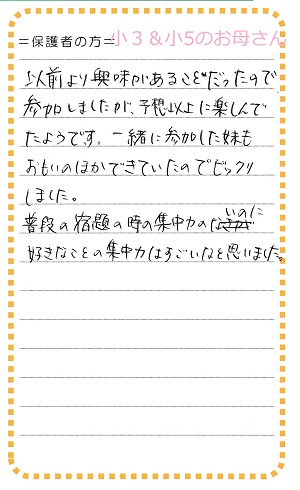 =保護者の方= 小3&小5のお母さん
以前より興味があることだったので
参加しましたが、予想以上に楽しんで
たようです。一緒に参加した妹も
おもいのほかできていたのでビックリ
しました。
普段の宿題の時の集中力のないのに
好きなことの集中力はすごいなと思いました。